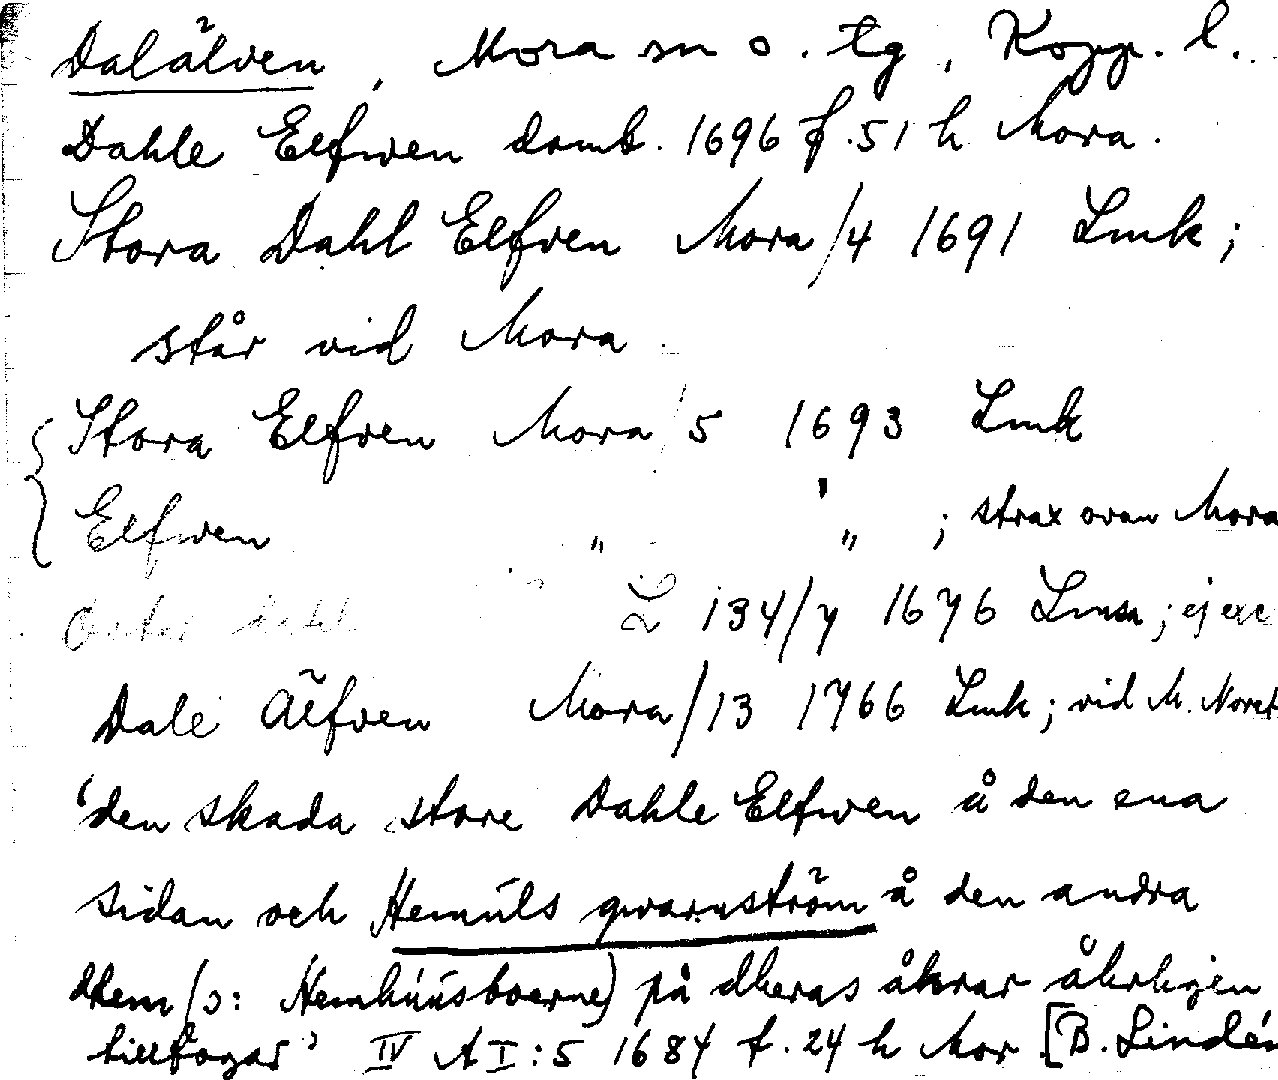 Dalälven, Mora sn o. tg, Kopp. l.
Dahle Elfwen domb. 1696 f. 51 h Mora.
Stora Dahl Elfven Mora/4 1691 Lmk;
står vid Mora.
Stora Elfven Mora/5 1693 Lmk
Elfwen " " ; strax ovan Mora
Öster Dahl L 134/7 1676 Lmk; ej exc
Dale Älfven Mora/13 1766 Lmk; vid M. Noret
'den skada store Dahle Elfwen å den ena
sidan och Hemüls qwarnström å den andra
dhem /ɔ: Hemhúúsboerne) på dheras åkrar åhrligen
tillfogar' IV A I:5 1684 f. 24 h Mor [B. Lindén